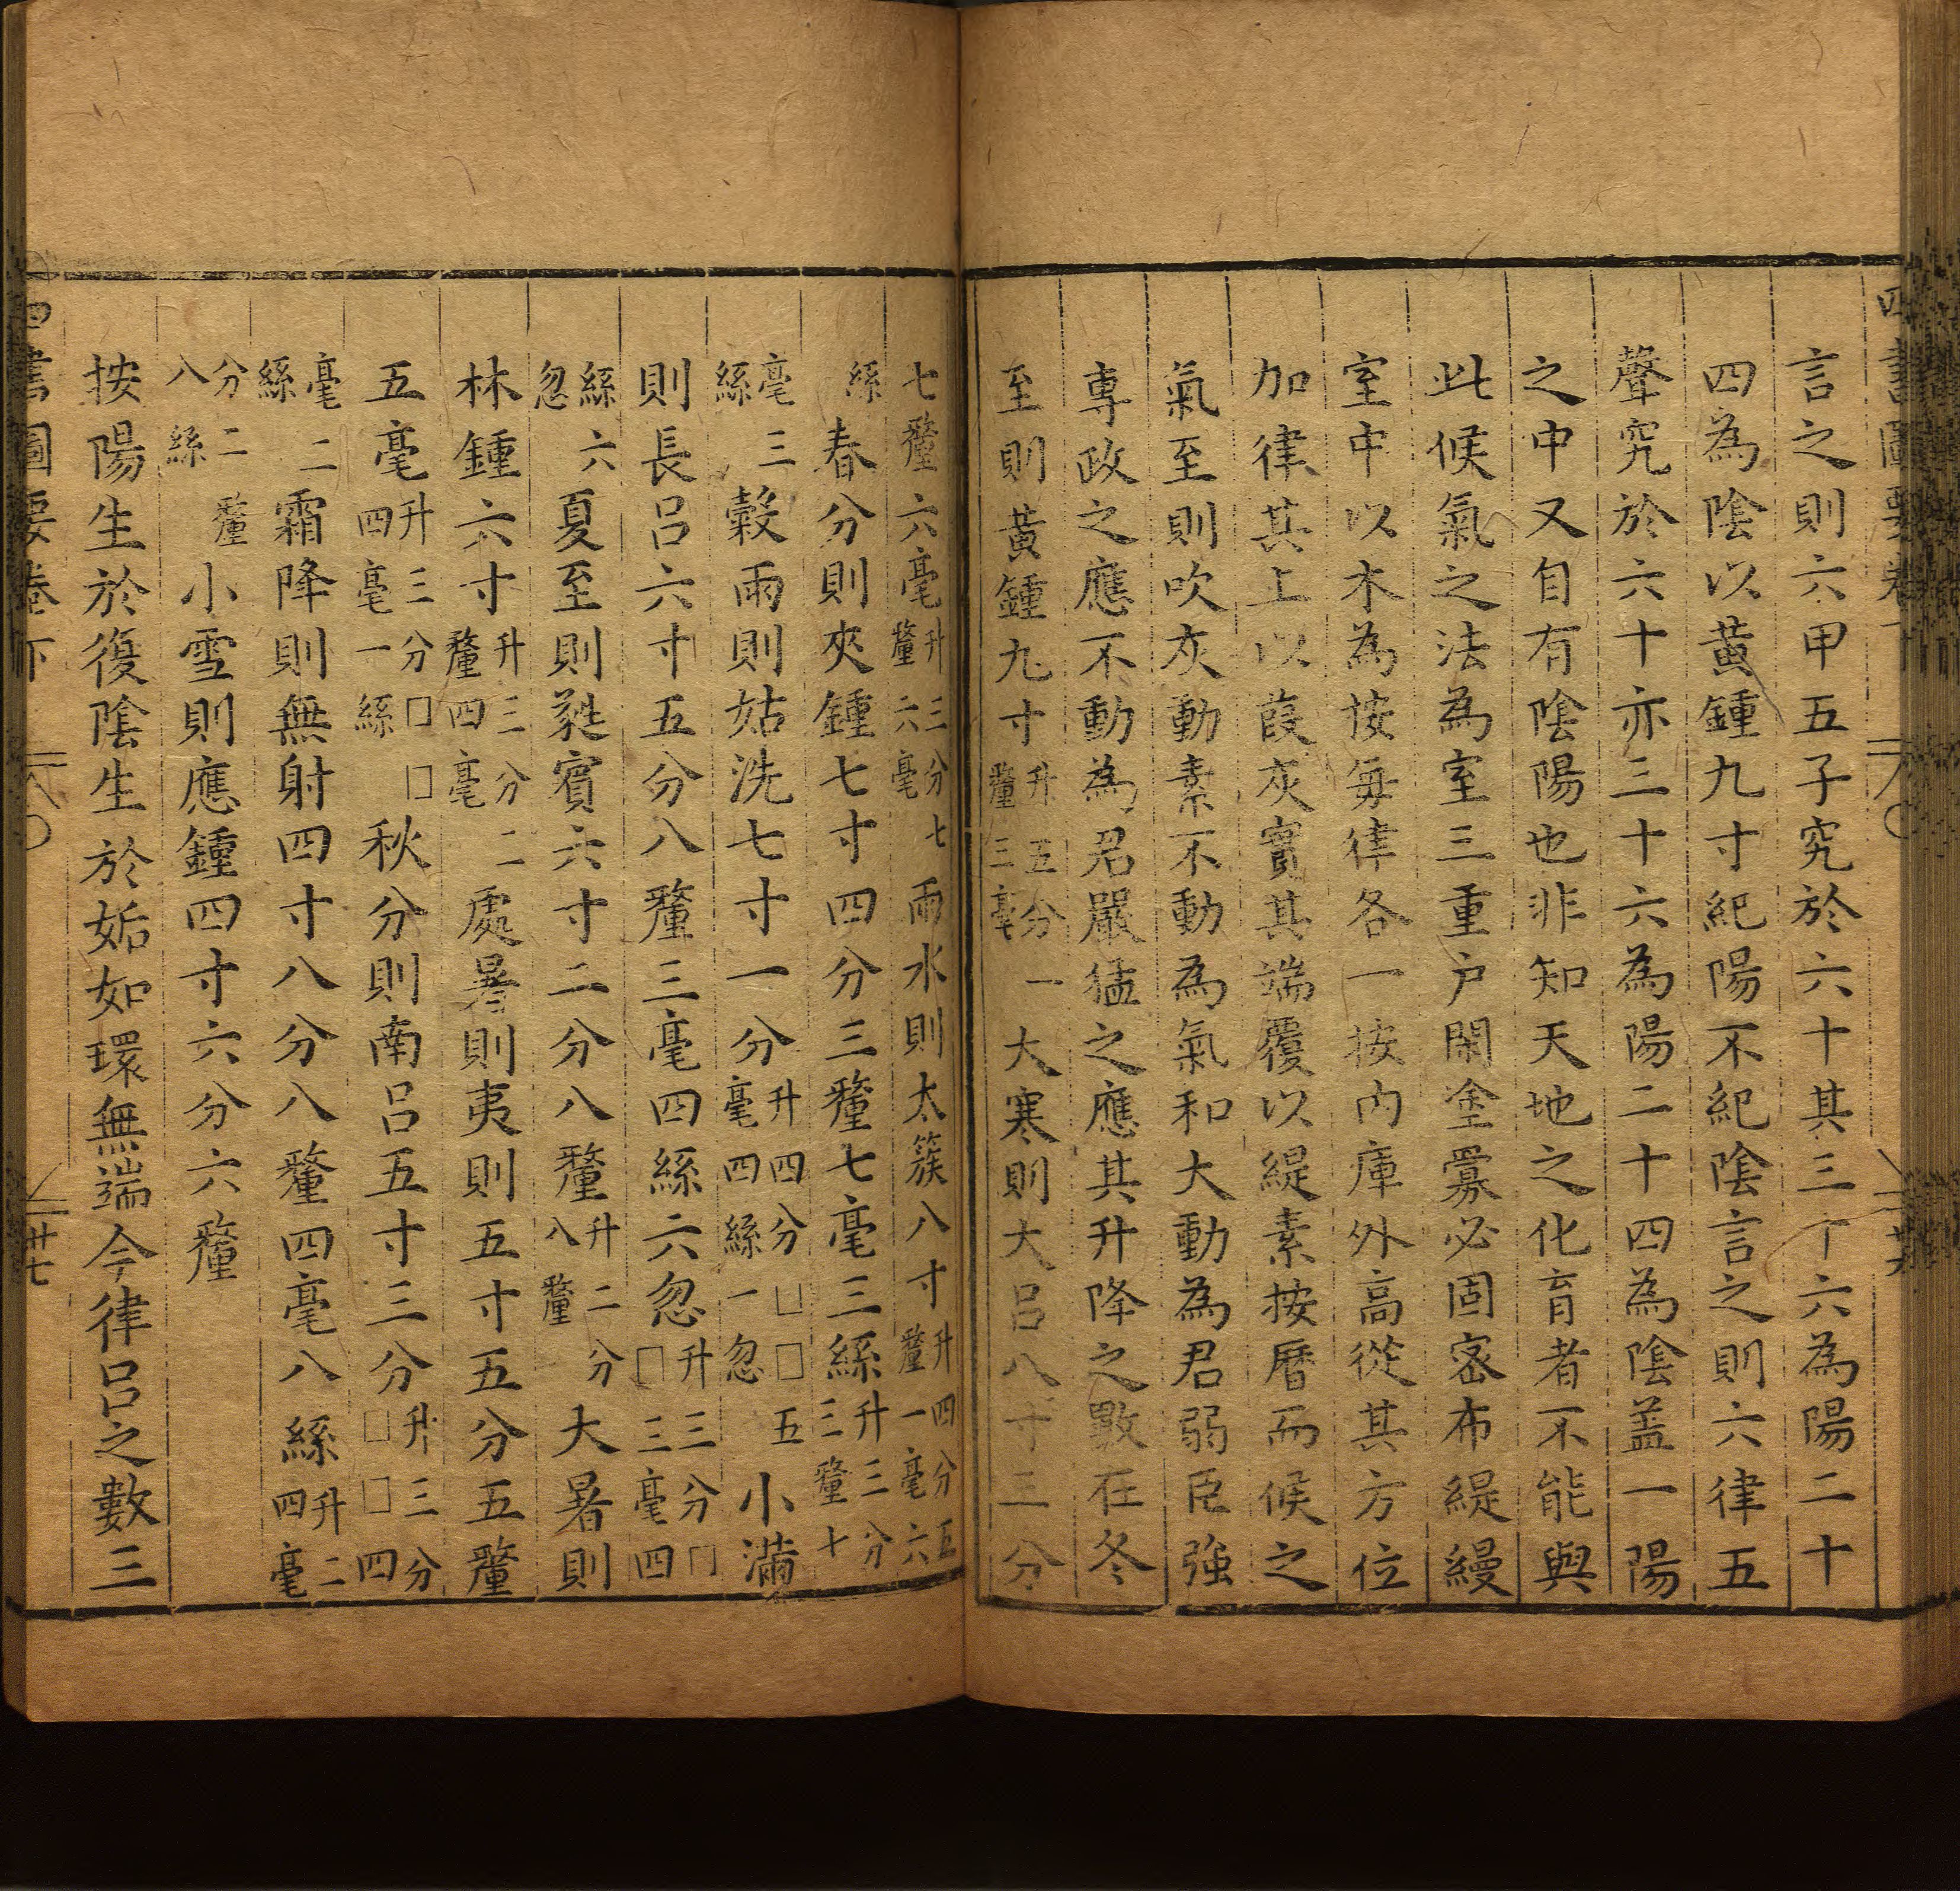 言之則六甲五子究於六十其三十六為陽二十
四為陰以黃鍾九寸紀陽不紀陰言之則六律五
聲究於六十亦三十六為陽二十四為陰盖一陽
之中又自有陰陽也非知天地之化育者不能與
此候氣之法為室三重户閉塗釁必固密布緹縵
室中以木為按每律各一按内庳外高從其方位
加律其上以葭灰實其端覆以緹素按曆而候之
氣至則吹灰動素不動為氣和大動為君弱臣強
專政之應不動為君嚴猛之應其升降之數在冬
至則黃鍾九寸升五分一釐三毫大寒則大呂八寸三分
七釐六毫升三分七釐六毫雨水則太簇八寸升四分五釐一毫六
絲春分則夾鍾七寸四分三釐七毫三絲升三分三釐七
毫三絲穀雨則姑洗七寸一分升四分□□五毫四絲一忽小滿
則長呂六寸五分八釐三毫四絲六忽升三分□□三毫四
絲六忽夏至則蕤賓六寸二分八釐升二分八釐大暑則
林鍾六寸升三分二釐四毫處暑則夷則五寸五分五釐
五毫升三分□□四毫一絲秋分則南呂五寸三分升三分□□四
毫二絲霜降則無射四寸八分八釐四毫八絲升二四毫
分二釐八絲小雪則應鍾四寸六分六釐
按陽生於復陰生於姤如環無端今律呂之數三
四書圖要卷下 廿七